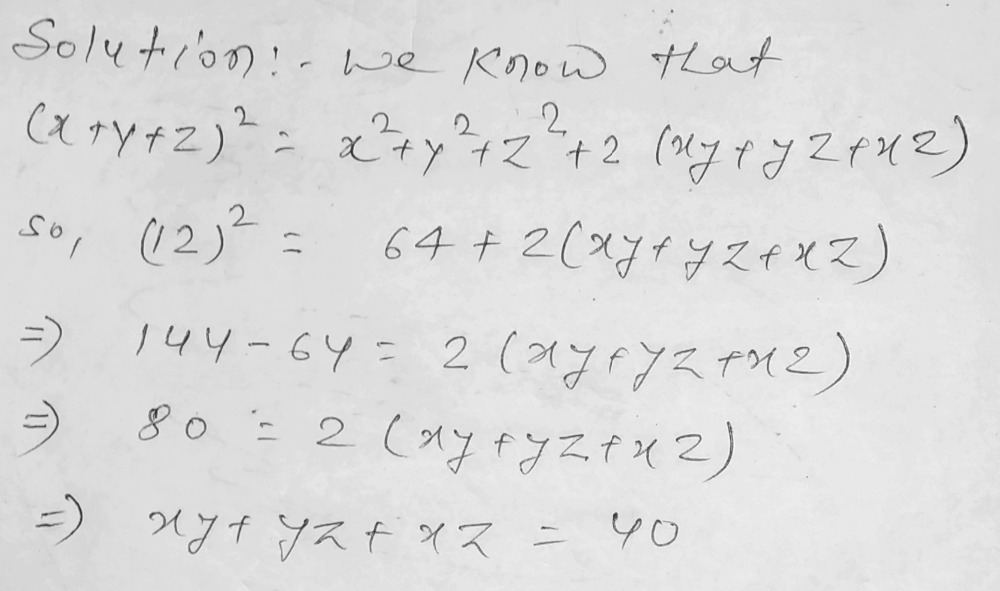 Solution:- we know that
(x+y+z)² = x²+y²+z²+2 (xy+yz+xz)
so, (12)² = 64 + 2(xy+yz+xz)
=) 144-64 = 2 (xy+yz+xz)
=) 80 = 2 (xy+yz+xz)
=) xy+yz+xz = 40